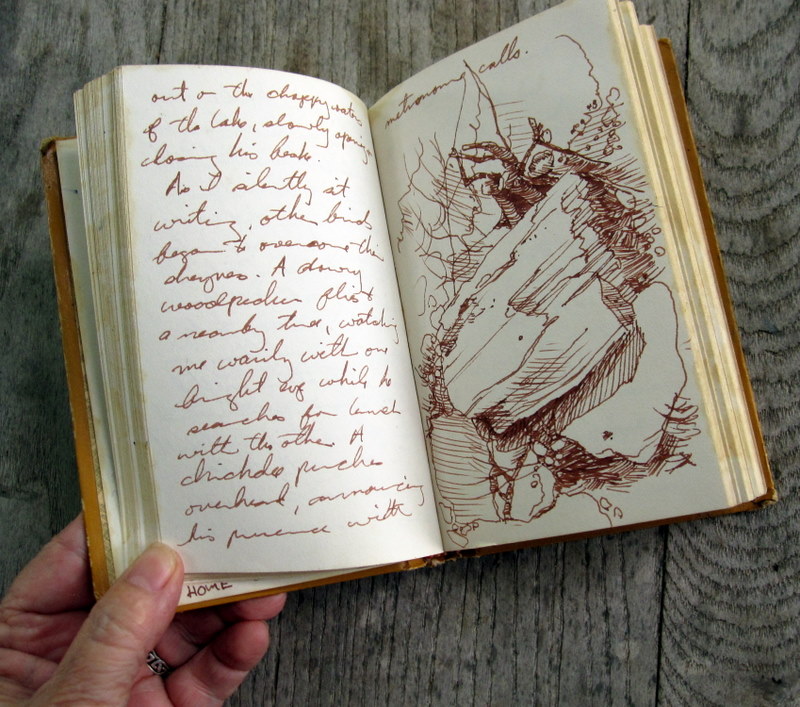 out on the choppy water
of the lake, slowly opening
closing his beak.
As I silently sit
writing, other birds
began to overcome their
shyness. A downy
woodpecker flies to
a nearby tree, watching
me warily with one
bright eye while he
searches for lunch
with the other. A
chickadee perches
overhead, announcing
his presence with
HOME
metronome calls.